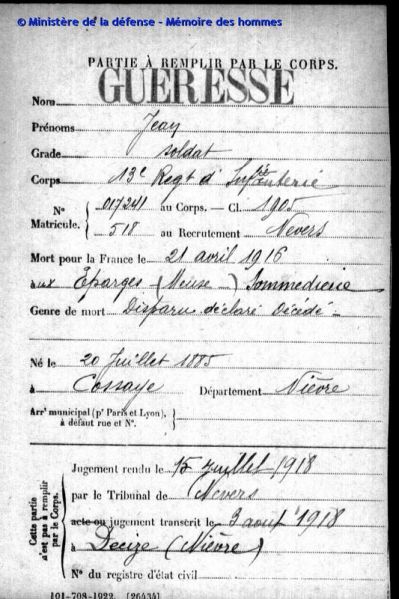 © Ministère de la défense - Mémoire des hommes
PARTIE À REMPLIR PAR LE CORPS.
GUERESSE
Nom
Prénoms Jean
Grade soldat
Corps 13e Regt d' Infanterie
N° 017241 au Corps. — Cl. 1905
Matricule. 518 au Recrutement Nevers
Mort pour la France le 21 avril 1916
aux Eparges (Meuse) Sommedieue
Genre de mort Disparu déclaré Décédé
Né le 20 Juillet 1885
à Cossaye Département Nièvre
Arrt municipal (pr Paris et Lyon),
à défaut rue et N°.
Cette partie n'est pas à remplir par le Corps.
Jugement rendu le 15 Juillet 1918
par le Tribunal de Nevers
acte ou jugement transcrit le 3 aout 1918
à Decize (Nièvre)
N° du registre d'état civil
101-708-1922. [26434]